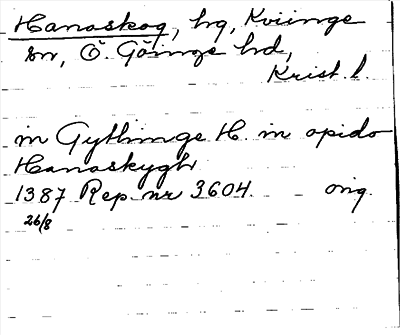 Hanaskog, hg, Kviinge
sn, Ö. Göinge hd,
Krist. l.
m Gythinge H. in opido
Hanaskygh
1387 Rep nr 3604. orig.
26/8